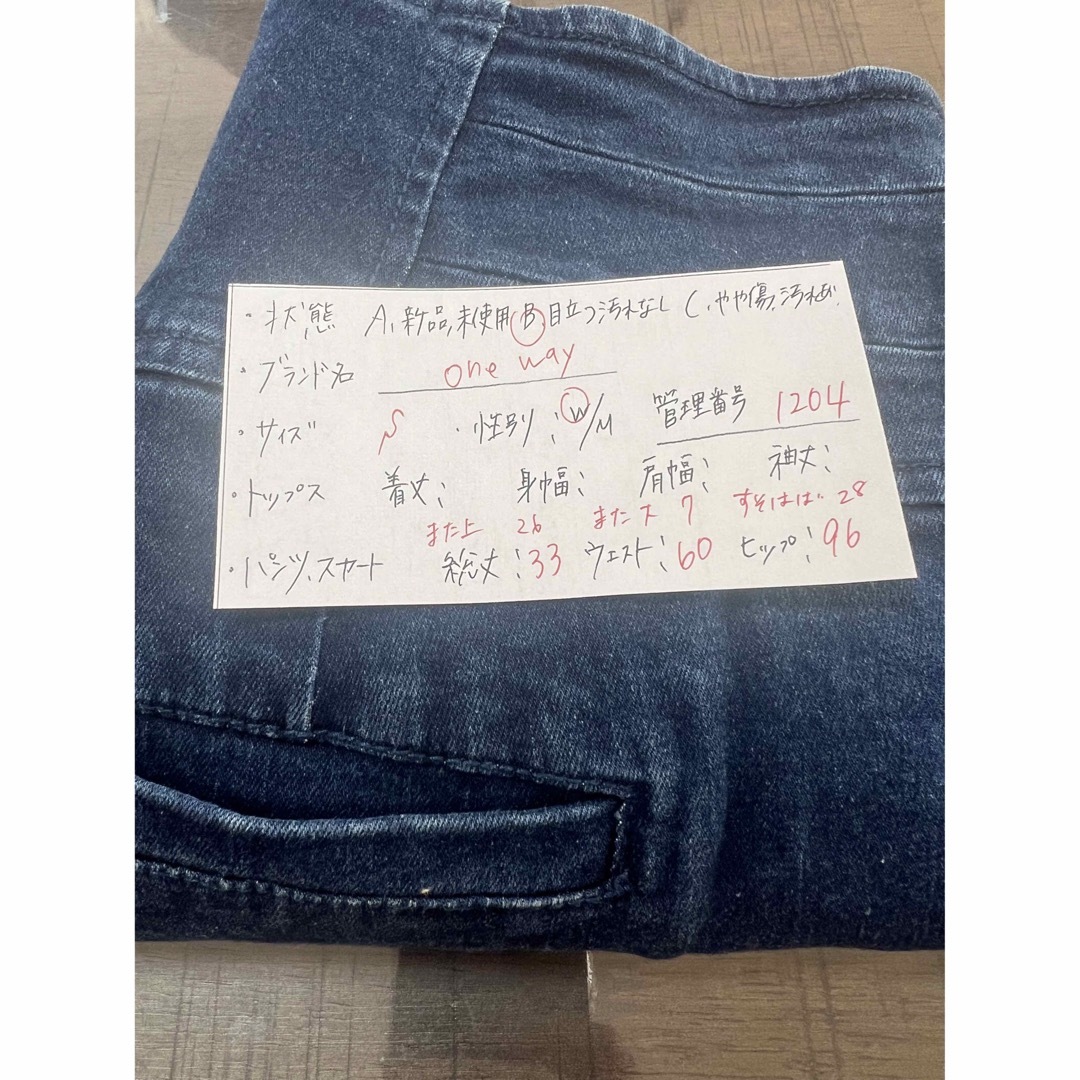 ・状態 A、新品,未使用 B、目立つ汚れなし C、やや傷、汚れあり
・ブランド名 one way
・サイズ S ・性別：W/M 管理番号 1204
・トップス 着丈： 身幅： 肩幅： 袖丈：
また上 26 また下 7 すそはば 28
・パンツ、スカート 総丈：33 ウエスト：60 ヒップ：96